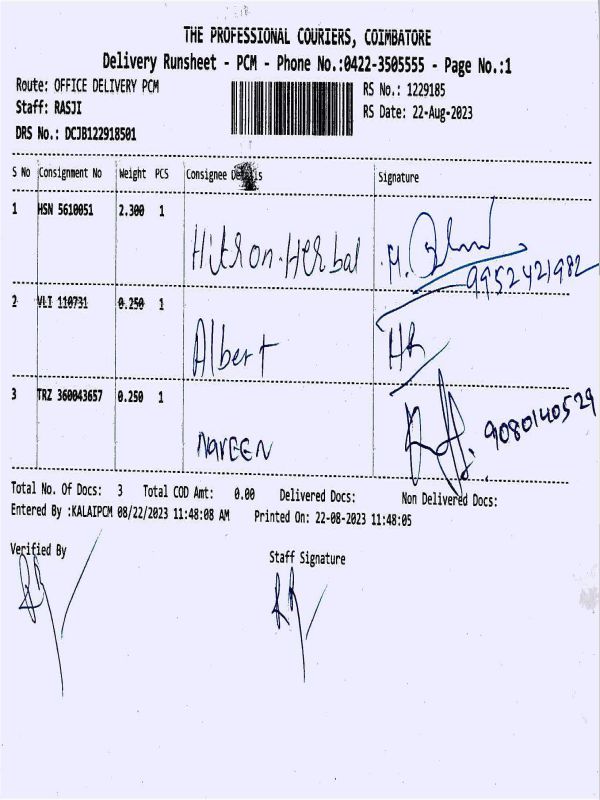 THE PROFESSIONAL COURIERS, COIMBATORE
Delivery Runsheet - PCM - Phone No.:0422-3505555 - Page No.:1
Route: OFFICE DELIVERY PCM
RS No.: 1229185
Staff: RASJI
RS Date: 22-Aug-2023
DRS No.: DCJB122918501
S No Consignment No Weight PCS Consignee Details Signature
1 HSN 5610051 2.300 1
Hitron Herbal
9952421982
2 VLI 110731 0.250 1
Albert HR
3 TRZ 360043657 0.250 1
9080140529
NAVEEN
Total No. Of Docs: 3 Total COD Amt: 0.00 Delivered Docs: Non Delivered Docs:
Entered By :KALAIPCM 08/22/2023 11:48:08 AM Printed On: 22-08-2023 11:48:05
Verified By
Staff Signature